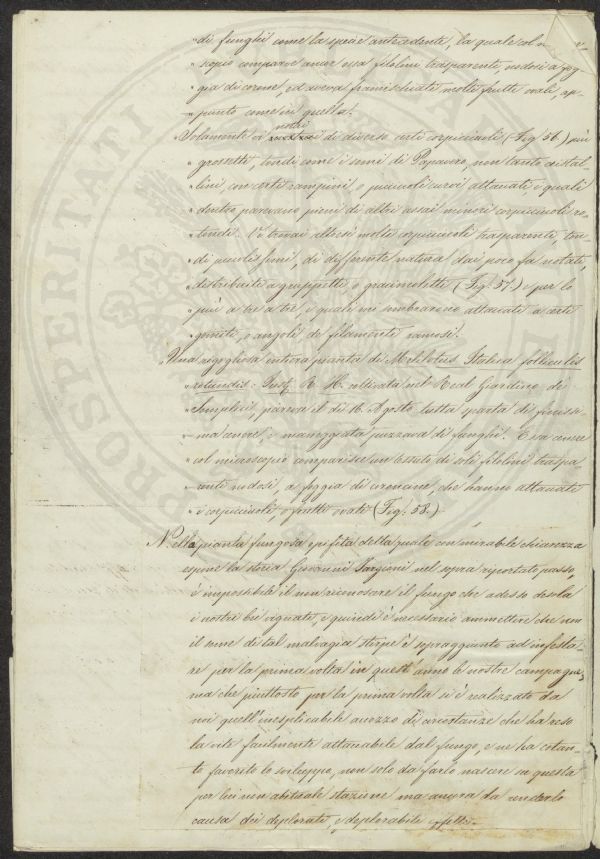 "di funghi come la specie antecedente, la quale col
"scopio comparve ancor essa filolini trasparenti, nodosi a fog-
"gia di corone, ed aveva framischiati molti frutti ovali, ap-
"punto come in quella.
"Solamente vi notai di diverso certi corpicciuoli (Fig. 56.) più
"grossetti, tondi come i semi di Papavero, non tanto cristal-
"lini con certi rampini, o piccioli curvi attaccati i quali
"dentro parevano pieni di altri assai minori corpicciuoli ro-
"tondi. Vi trovai altresì molti corpicciuoli trasparenti, ton-
"di piccolissimi, di differente natura dai poco fa notati,
"distribuiti a gruppetti o gracimoletti (Fig. 57.) e per lo
"più a tre a tre, i quali mi sembrarono attaccati a certi
"punti, o angoli de' filamenti ramosi.
"Una rigogliosa intiera pianta di Melilotus Italica folliculis
"rotundis. Inst. R. H. coltivata nel Real Giardino de'
"Semplici, pareva il dì 16. Agosto tutta sparsa di finissi-
"ma cenere, e maneggiata puzzava di funghi. Essa cenere
"col microscopio comparisce un tessuto di soli filolini traspa-
"renti nodosi, a foggia di coroncine, che hanno attaccati
"i corpicciuoli, o frutti ovati (Fig. 58.)
Nella pianta fungosa epifita della quale con mirabile chiarezza
espone la storia Giovanni Targioni nel sopra riportato passo,
è impossibile il non riconoscere il fungo che adesso desola
i nostri bei vigneti, e quindi è necessario ammettere che non
il seme di tal malvagia stirpe è sopraggiunto ad infesta-
re per la prima volta in quest'anno le nostre campagne,
ma che piuttosto per la prima volta si è realizzato da
noi quell'inesplicabile accozzo di circostanze che ha reso
la vite facilmente attaccabile dal fungo, e ne ha cotan-
to favorito lo sviluppo, non solo da farlo nascere su questa
per lui non abituale stazione ma ancora da renderlo
causa dei deplorati, e deplorabili effetti.
PROSPERITATI